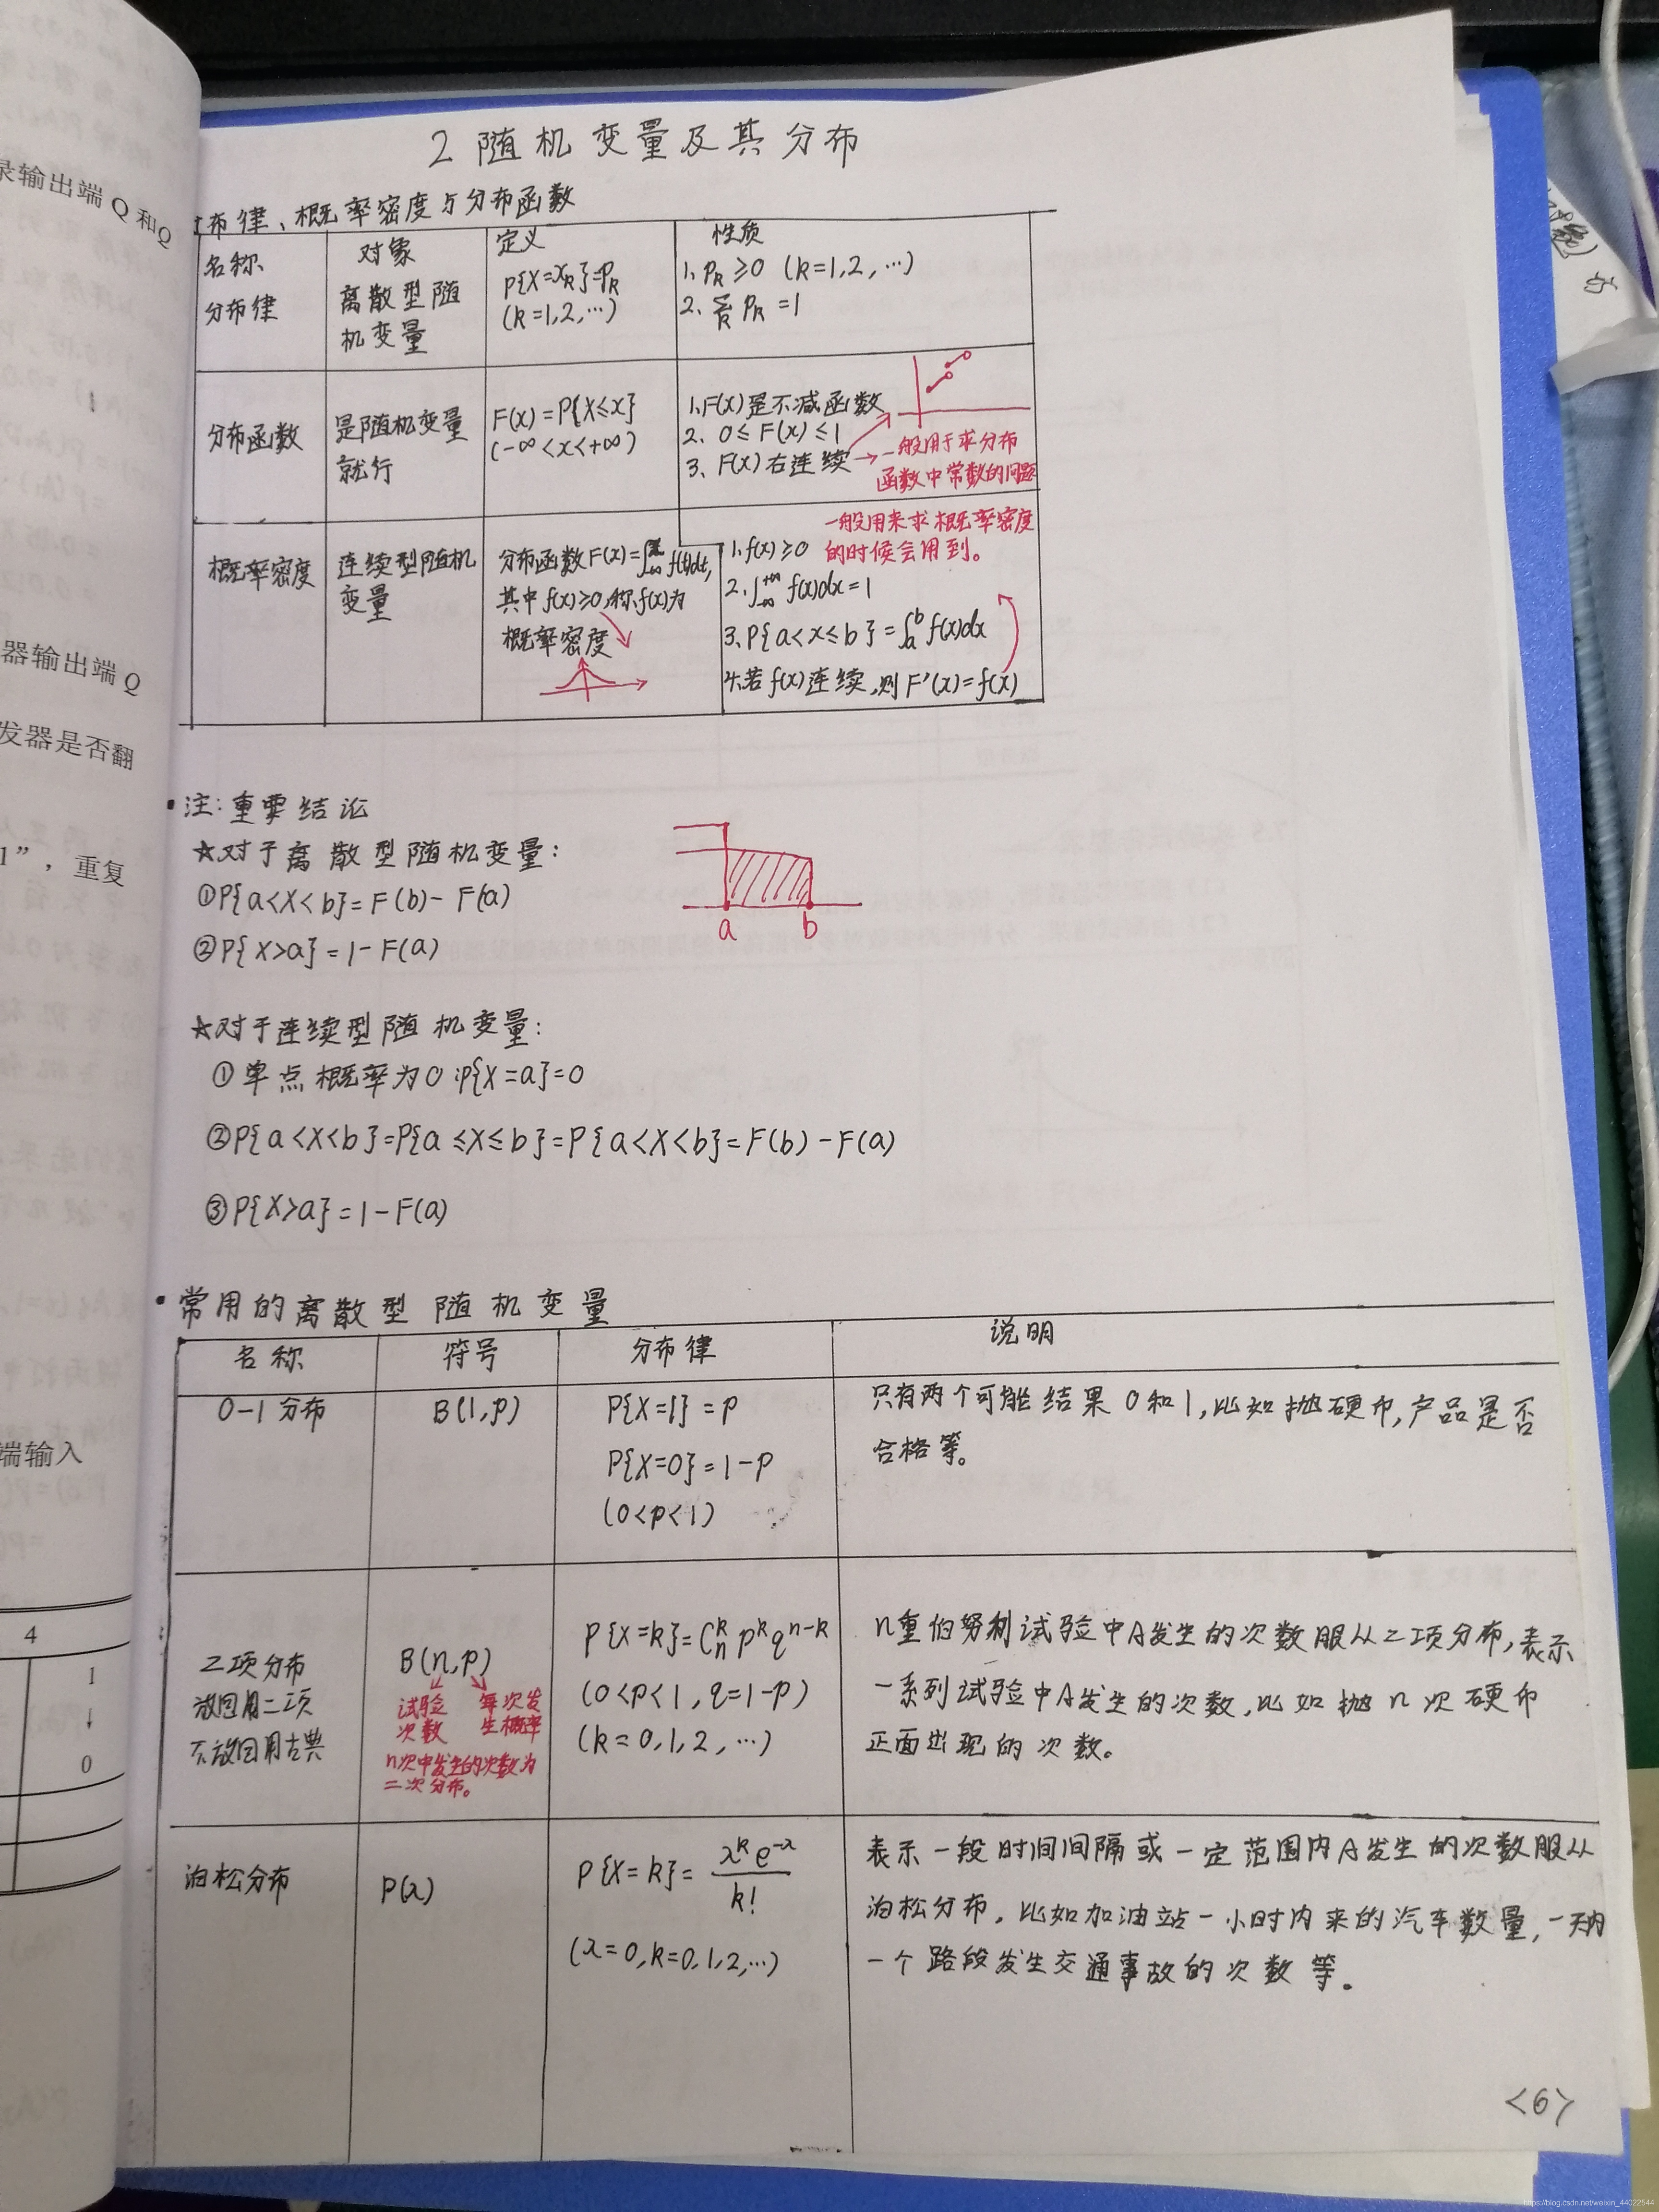 2 随机变量及其分布
布律、概率密度与分布函数
名称 对象 定义 性质
分布律
离散型随
机变量
P{X=xk}=pk
(k=1,2,…)
1、pk≥0 (k=1,2,…)
2、∑k pk=1
分布函数
是随机变量
就行
F(x)=P{X≤x}
(-∞<x<+∞)
1、F(x)是不减函数
2、0≤F(x)≤1
3、F(x)右连续
→一般用于求分布
函数中常数的问题
概率密度
连续型随机
变量
分布函数F(x)=∫-∞^x f(t)dt,
其中f(x)≥0,称f(x)为
概率密度
一般用来求概率密度
的时候会用到。
1、f(x)≥0
2、∫-∞^+∞ f(x)dx=1
3、P{a<x≤b}=∫a^b f(x)dx
4、若f(x)连续,则F'(x)=f(x)
•注:重要结论
☆对于离散型随机变量:
①P{a<X<b}=F(b)-F(a)
②P{X>a}=1-F(a)
a b
☆对于连续型随机变量:
①单点概率为0:P{X=a}=0
②P{a<X<b}=P{a≤X≤b}=P{a<X<b}=F(b)-F(a)
③P{X>a}=1-F(a)
•常用的离散型随机变量
名称 符号 分布律 说明
0-1分布
B(1,p)
P{X=1}=p
P{X=0}=1-p
(0<p<1)
只有两个可能结果0和1,比如抛硬币,产品是否
合格等。
二项分布
放回用二项
不放回用古典
B(n,p)
试验 每次发
次数 生概率
n次中发生的次数为
二次分布。
P{X=k}=Cn^k p^k q^n-k
(0<p<1,q=1-p)
(k=0,1,2,…)
n重伯努利试验中A发生的次数服从二项分布,表示
一系列试验中A发生的次数,比如抛n次硬币
正面出现的次数。
泊松分布
P(λ)
P{X=k}=λ^k e^-λ/k!
(λ=0,k=0,1,2,…)
表示一段时间间隔或一定范围内A发生的次数服从
泊松分布,比如加油站一小时内来的汽车数量,一天内
一个路段发生交通事故的次数等。
<6>
录输出端 Q 和Q
器输出端 Q
发器是否翻
1”，重复
端输入
4
1
↓
0
https://blog.csdn.net/weixin_44022544